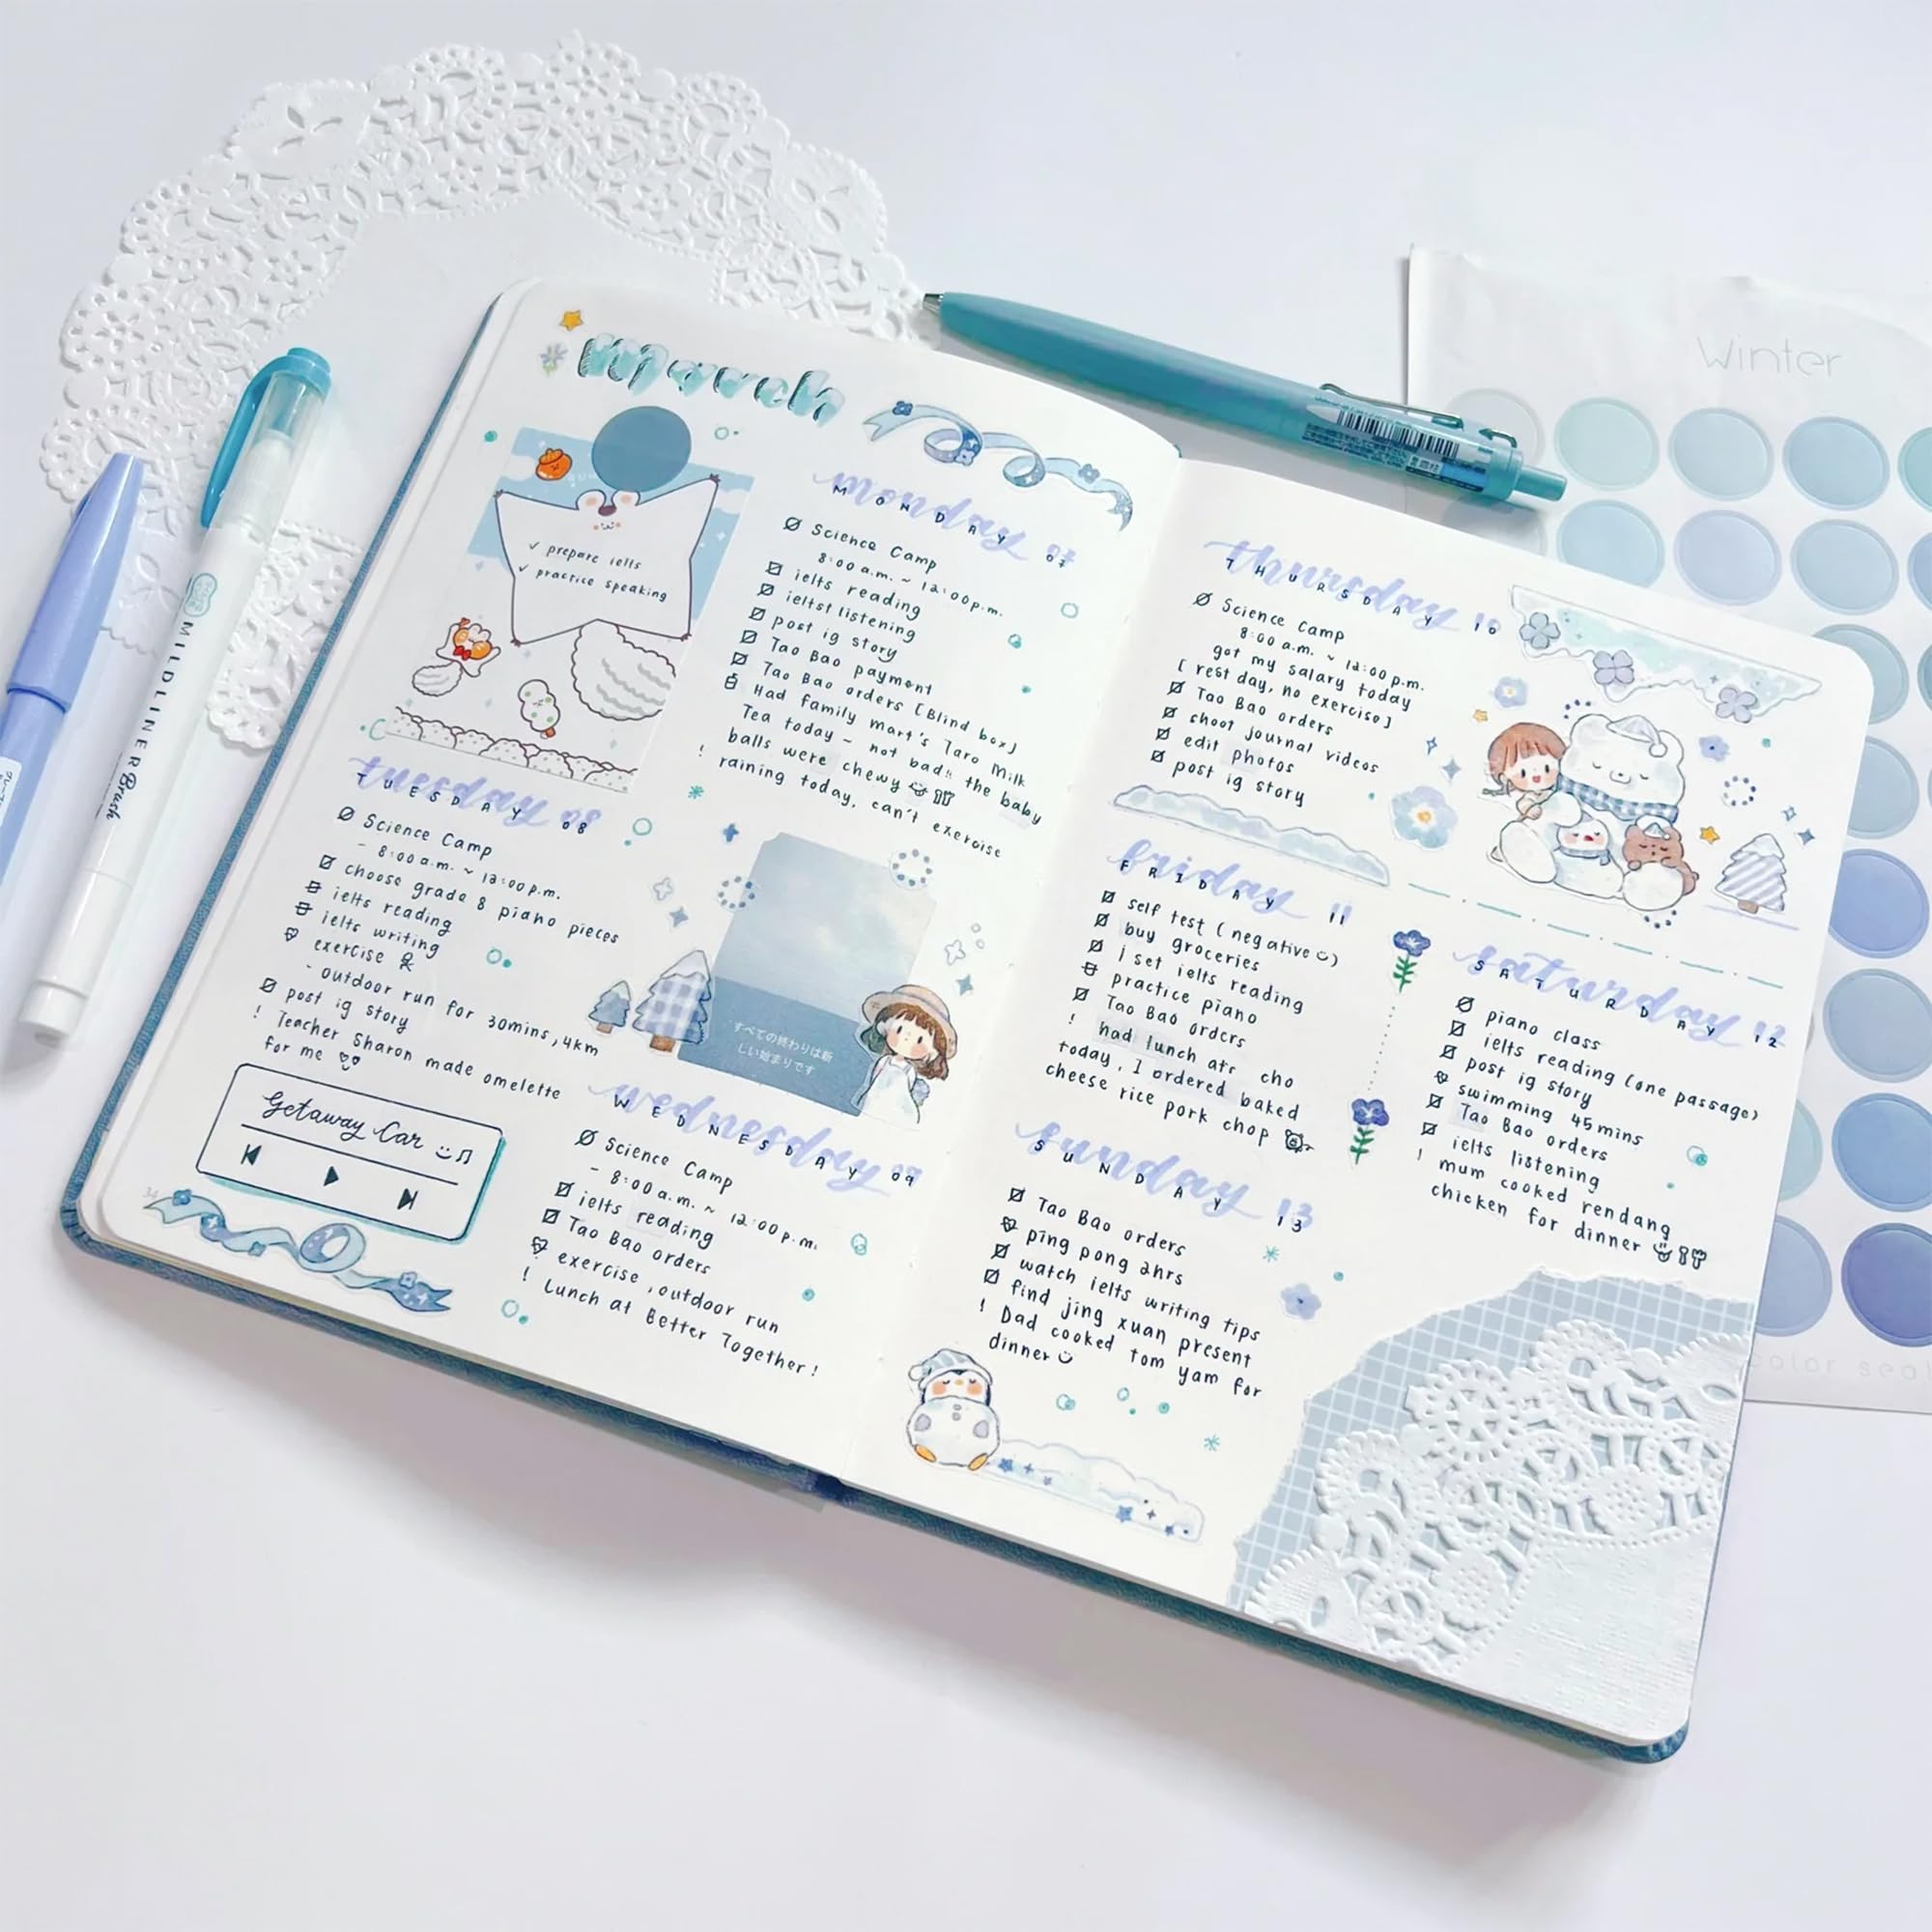 march
✓ prepare ielts
✓ practice speaking
monday 07
MONDAY
Science Camp
8:00 a.m. ~ 12:00 p.m.
ielts reading
ieltst listening
post ig story
Tao Bao payment
Tao Bao orders [Blind box]
Had family mart's Taro Milk
Tea today - not bad!! the baby
balls were chewy
! raining today, can't exercise
tuesday 08
TUESDAY
Science Camp
- 8:00 a.m. ~ 12:00 p.m.
choose grade 8 piano pieces
ielts reading
ielts writing
exercise
- outdoor run for 30mins, 4km
post ig story
! Teacher Sharon made omelette
for me
Getaway Car
34
すべての終わりは新
しい始まりです
wednesday 09
WEDNESDAY
Science Camp
- 8:00 a.m. ~ 12:00 p.m.
ielts reading
Tao Bao orders
exercise, outdoor run
! Lunch at Better Together!
thursday 10
THURSDAY
Science Camp
8:00 a.m. ~ 12:00 p.m.
got my salary today
[rest day, no exercise]
Tao Bao orders
shoot journal videos
edit photos
post ig story
friday 11
FRIDAY
self test (negative)
buy groceries
1 set ielts reading
practice piano
Tao Bao orders
! had lunch at cho
today, I ordered baked
cheese rice pork chop
saturday 12
SATURDAY
piano class
ielts reading (one passage)
post ig story
swimming 45 mins
Tao Bao orders
ielts listening
! mum cooked rendang
chicken for dinner
sunday 13
SUNDAY
Tao Bao orders
ping pong 2hrs
watch ielts writing tips
find jing xuan present
! Dad cooked tom yam for
dinner
MILDLINER Brush
Winter
color seal